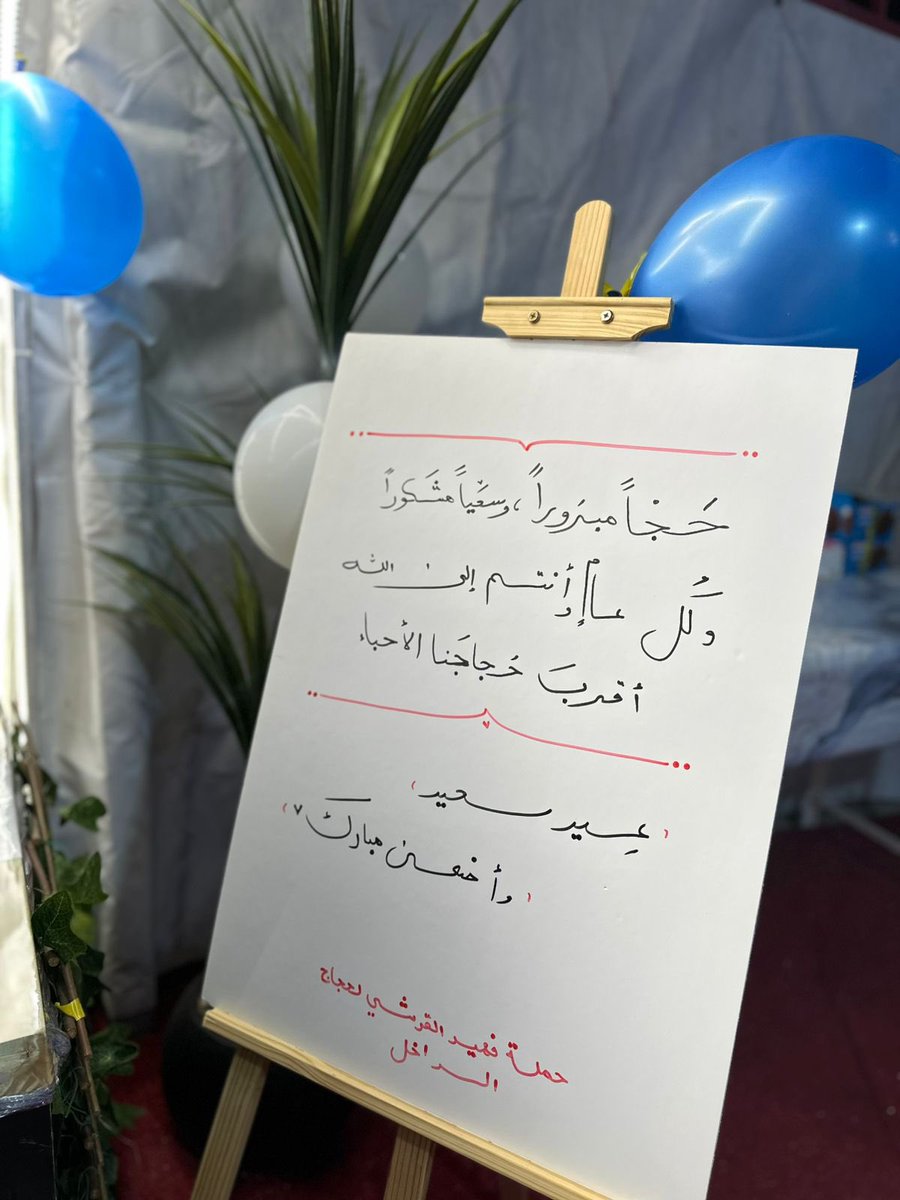 حَجّاً مبروراً، وسعْياً مشكوراً
وكُل عام وأنتم إلى الله
أقربَ حُجاجَنا الأحباء
عيد سعيد
وأضحى مبارك
حملة فهيد القرشي لحجاج
الداخل